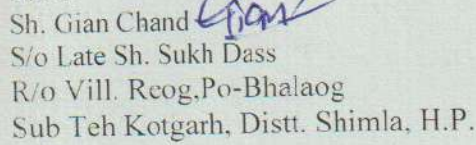 Sh. Gian Chand
S/o Late Sh. Sukh Dass
R/o Vill. Reog,Po-Bhalaog
Sub Teh Kotgarh, Distt. Shimla, H.P.